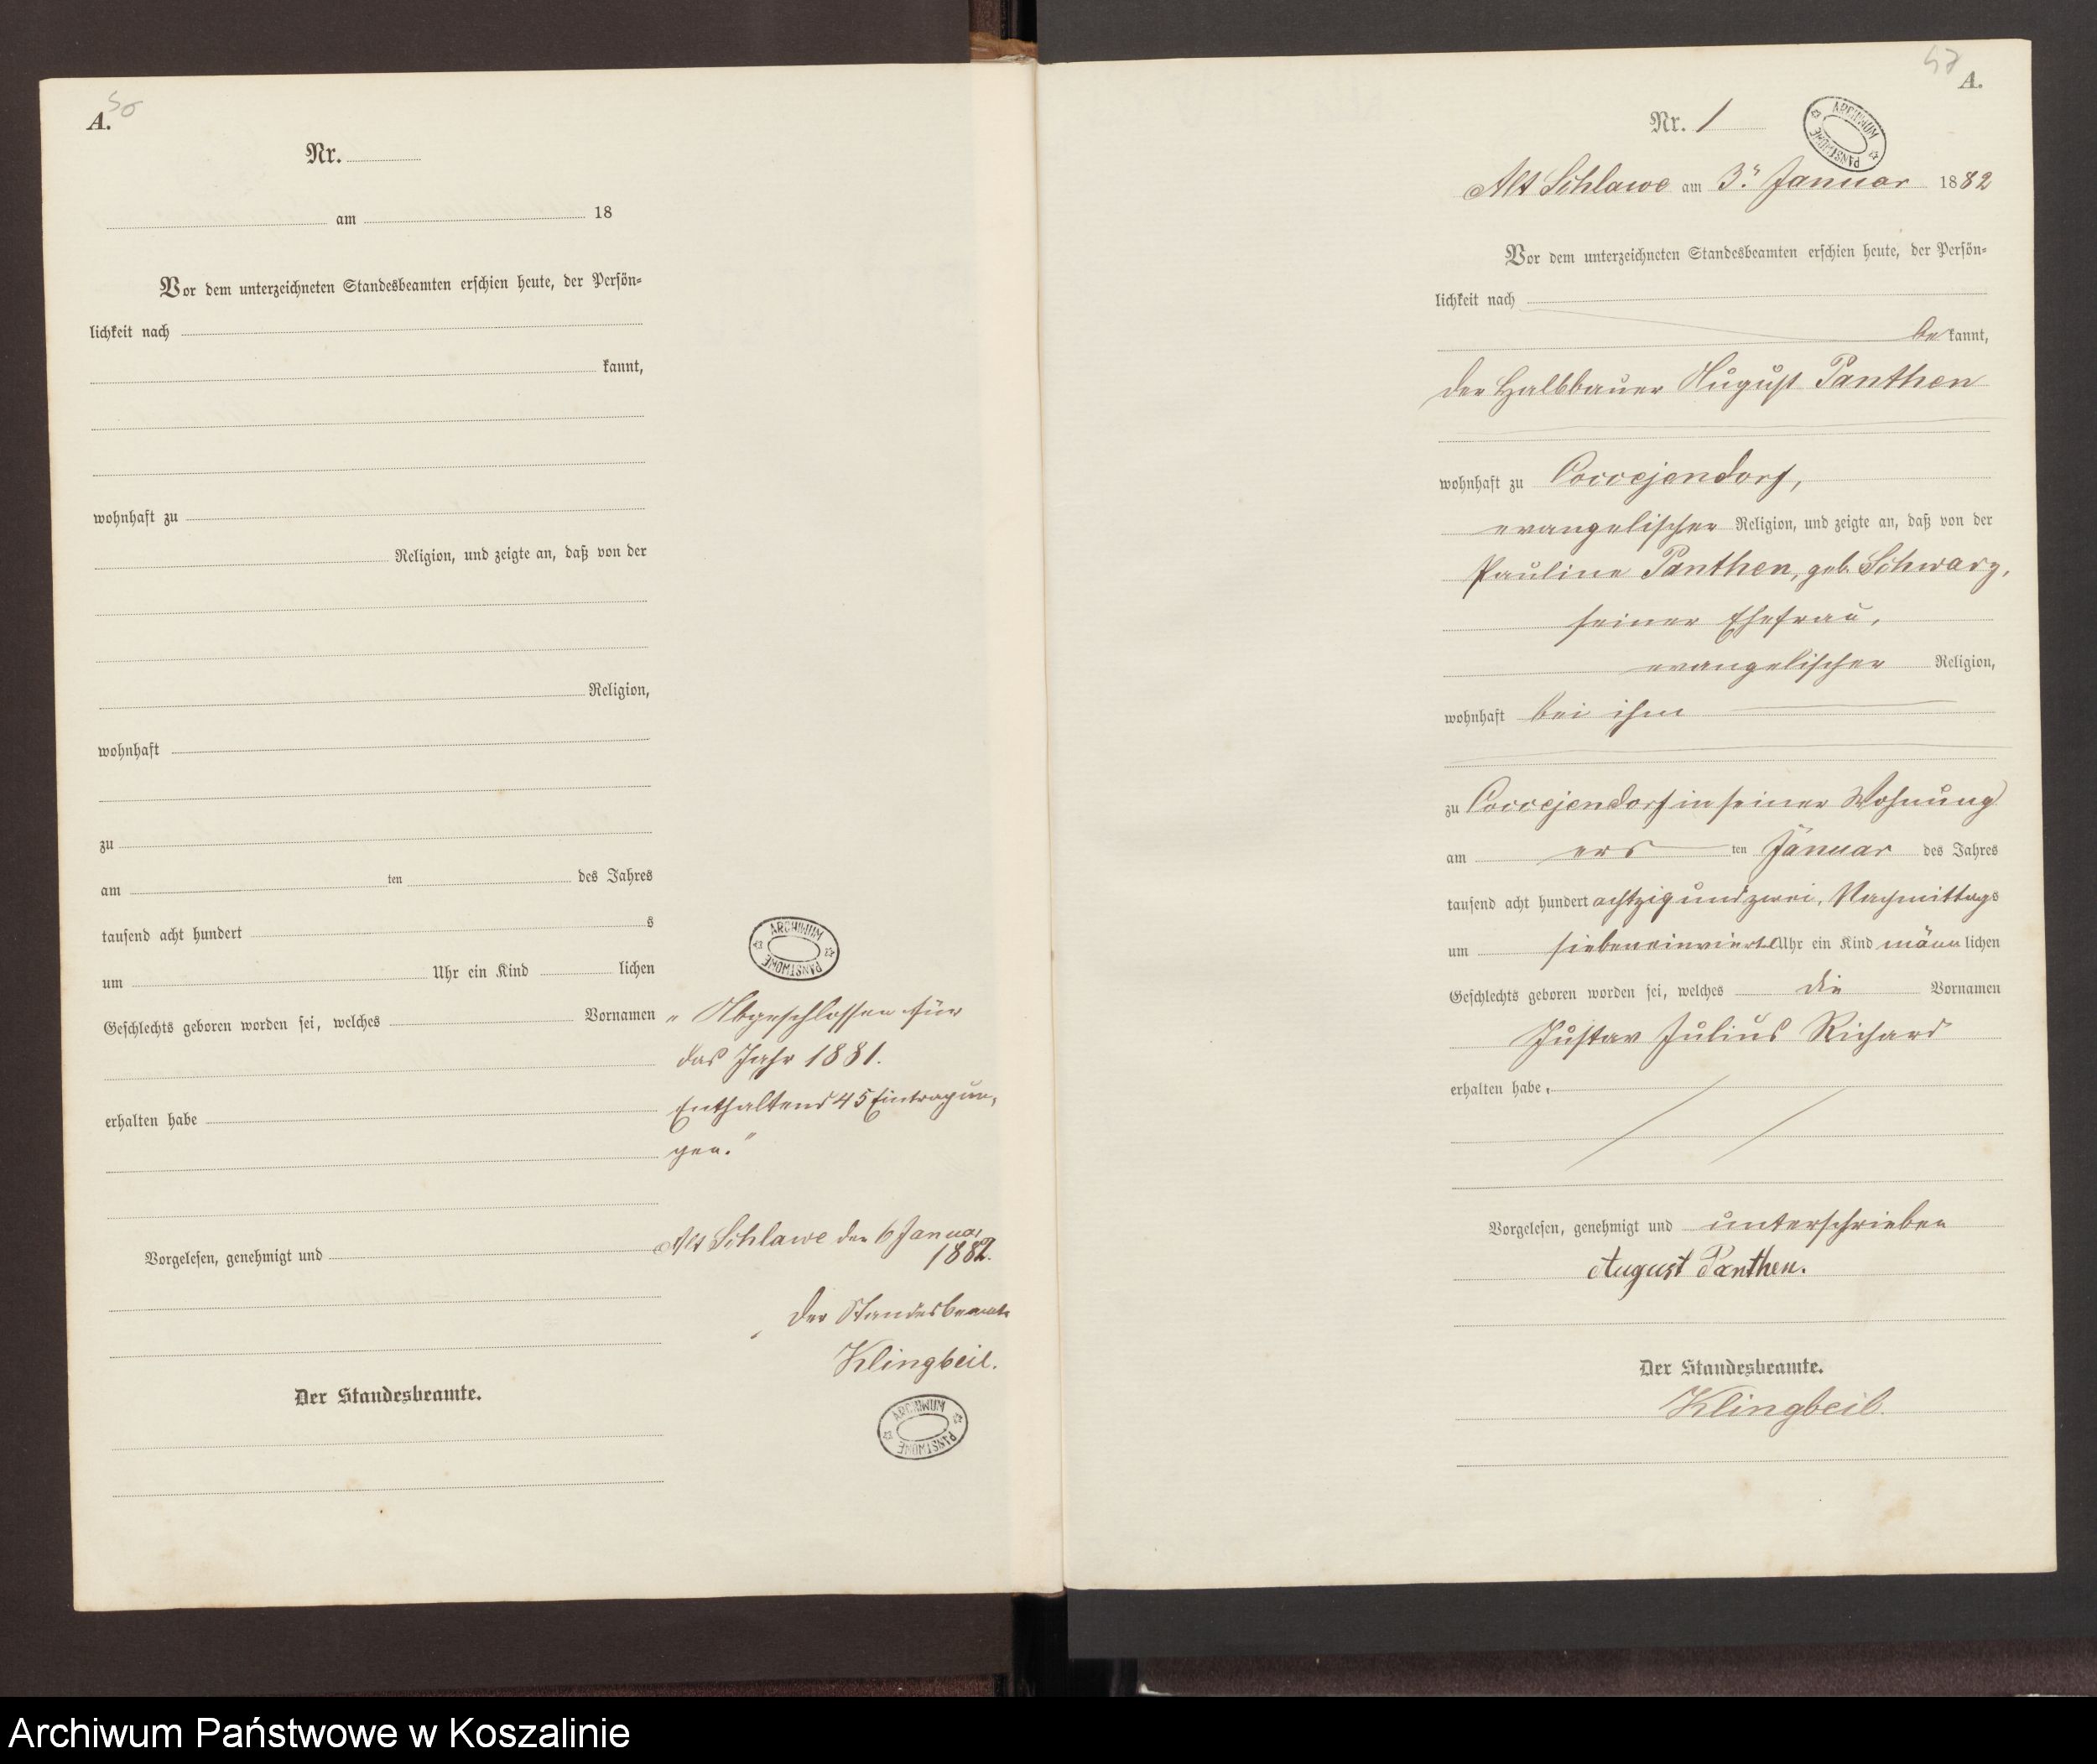 A.
50
Nr.
am 18
Vor dem unterzeichneten Standesbeamten erschien heute, der Persön-
lichkeit nach
kannt,
wohnhaft zu
Religion, und zeigte an, daß von der
Religion,
wohnhaft
zu
am ten des Jahres
tausend acht hundert s
um Uhr ein Kind lichen
Geschlechts geboren worden sei, welches Vornamen
erhalten habe
Vorgelesen, genehmigt und
Der Standesbeamte.
ARCHIWUM PAŃSTWOWE
„Abgeschlossen für
das Jahr 1881.
Enthaltend 45 Eintragun-
gen.“
Alt Schlawe den 6 Januar
1882.
Der Standesbeamte
Klingbeil.
ARCHIWUM PAŃSTWOWE
A.
Nr. 1
ARCHIWUM PAŃSTWOWE
Alt Schlawe am 3. Januar 1882
Vor dem unterzeichneten Standesbeamten erschien heute, der Persön-
lichkeit nach
bekannt,
der Halbbauer August Panthen
wohnhaft zu Coccejendorf,
evangelischer Religion, und zeigte an, daß von der
Pauline Panthen, geb. Schwarz,
seiner Ehefrau,
evangelischer Religion,
wohnhaft bei ihm
zu Coccejendorf in seiner Wohnung
am ersten Januar des Jahres
tausend acht hundert achtzig und zwei, Nachmittags
um sieben einviertel Uhr ein Kind männlichen
Geschlechts geboren worden sei, welches die Vornamen
Gustav Julius Richard
erhalten habe.
Vorgelesen, genehmigt und unterschrieben
August Panthen.
Der Standesbeamte.
Klingbeil.
Archiwum Państwowe w Koszalinie